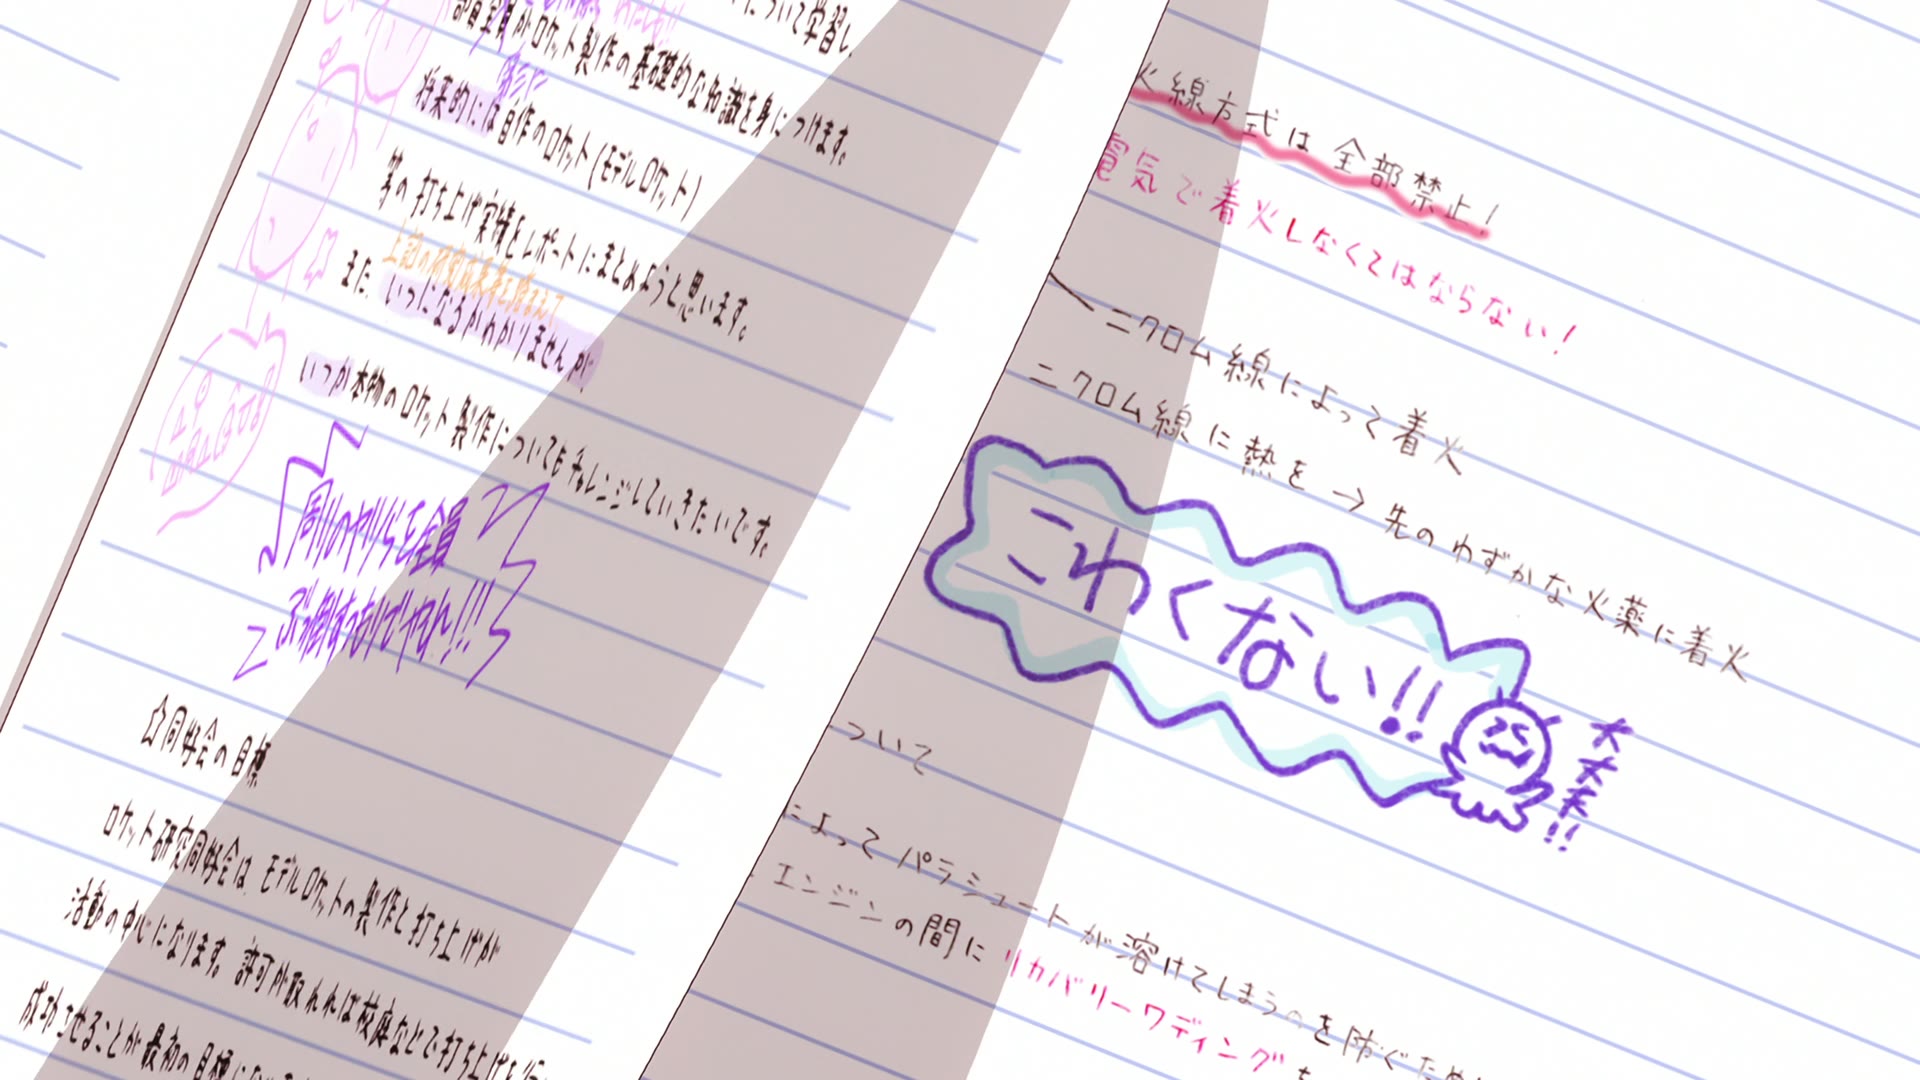 について学習し、
部員全員がロケット製作の基礎的な知識を身につけます。
将来的には自作のロケット(モデルロケット)
等の打ち上げ実績をレポートにまとめようと思います。
上記の研究成果等を踏まえて
また、いつになるかわかりませんが
いつか本物のロケット製作についてもチャレンジしていきたいです。
周りのヤツらを全員
ぶっ倒すつもりでやるん!!!
☆同好会の目標
ロケット研究同好会は、モデルロケットの製作と打ち上げが
活動の中心になります。許可が取れれば校庭などで打ち上げを行
成功させることが最初の目標に
火線方式は全部禁止!
電気で着火しなくてはならない!
ニクロム線によって着火
ニクロム線に熱を→先のわずかな火薬に着火
こわくない!!
大丈夫!!
ついて
によってパラシュートが溶けてしまうのを防ぐため
エンジンの間にリカバリーワディングを